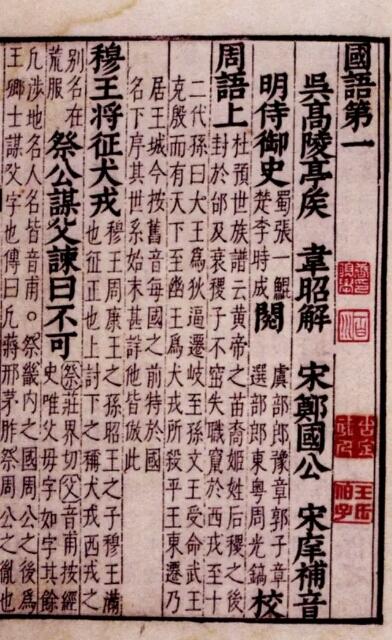 國語第一
吳髙陵亭矦 韋昭解 宋鄭國公 宋庠補音
明侍御史 蜀張一鯤 楚李時成 閱 虞部郎豫章郭子章 選部郎東粵周光鎬 校
周語上 杜預世族譜云黄帝之苗裔姬姓后稷之後
封於邰及衰稷子不窋失職竄於西戎至十
二代孫曰大王爲狄逼遷岐至孫文王受命武王
克殷而有天下至幽王爲犬戎所殺平王東遷乃
居王城今按舊音每國之前特於國
名下序其世系始末甚詳他皆倣此
穆王将征犬戎 穆王周康王之孫昭王之子穆王滿
也征正也上討下之稱犬戎西戎之
别名在
荒服 祭公謀父諫曰不可 祭莊界切父音甫按經
史唯父母字如字其餘
凢涉地名人名皆音甫。祭畿内之國周公之後爲
王卿士謀父字也傳曰凢蔣邢茅胙祭周公之胤也